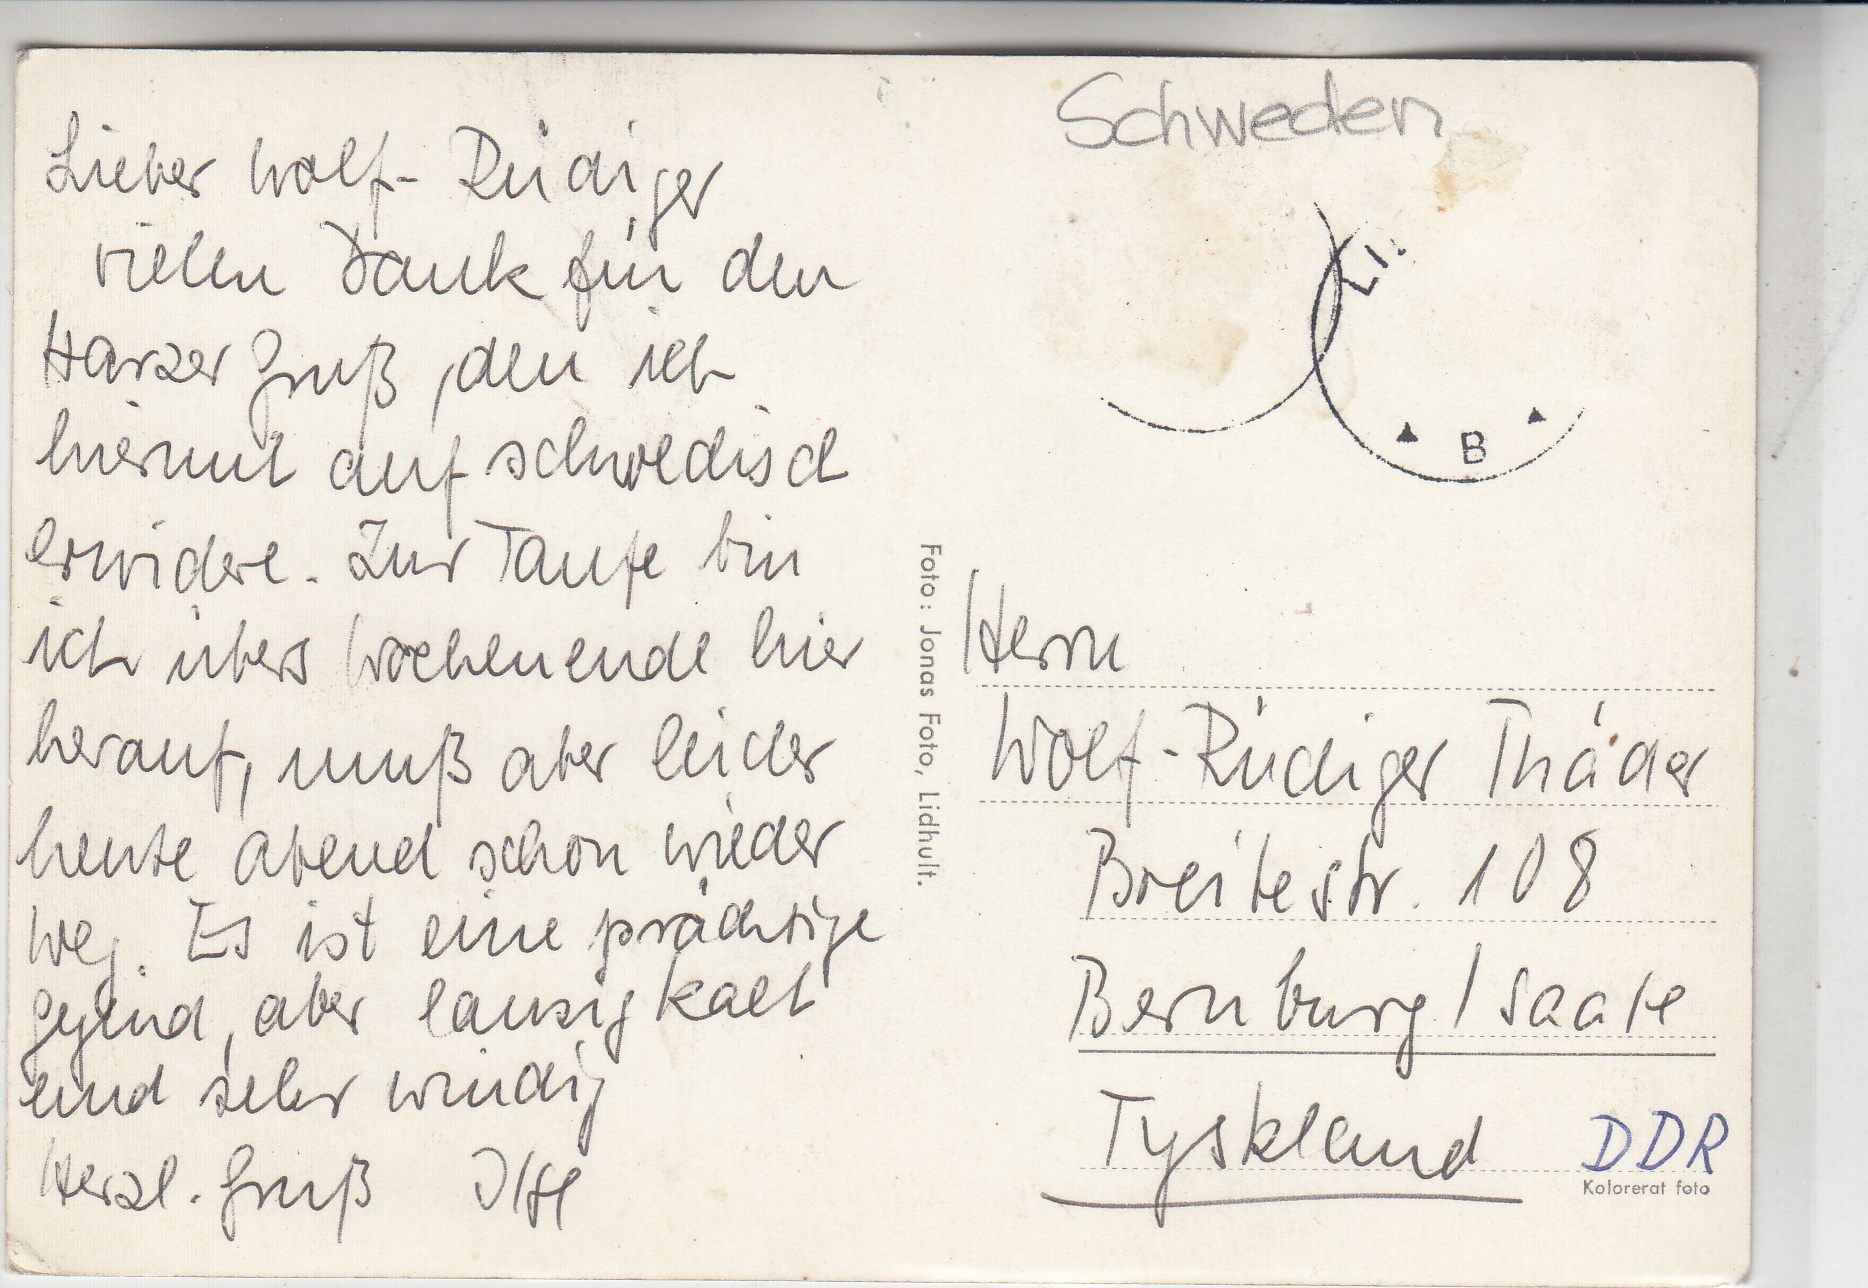 Lieber Wolf-Rüdiger
vielen Dank für den
Harzer Gruß, den ich
hiermit auf schwedisch
erwidere. Zur Taufe bin
ich übers Wochenende hier
herauf, muß aber leider
heute abend schon wieder
weg. Es ist eine prächtige
Gegend, aber lausig kalt
und sehr windig
Herzl. Gruß
Foto: Jonas Foto, Lidhult.
Schweden
LI.
B
Herrn
Wolf-Rüdiger Thäder
Breitestr. 108
Bernburg / Saale
Tyskland
DDR
Kolorerat foto